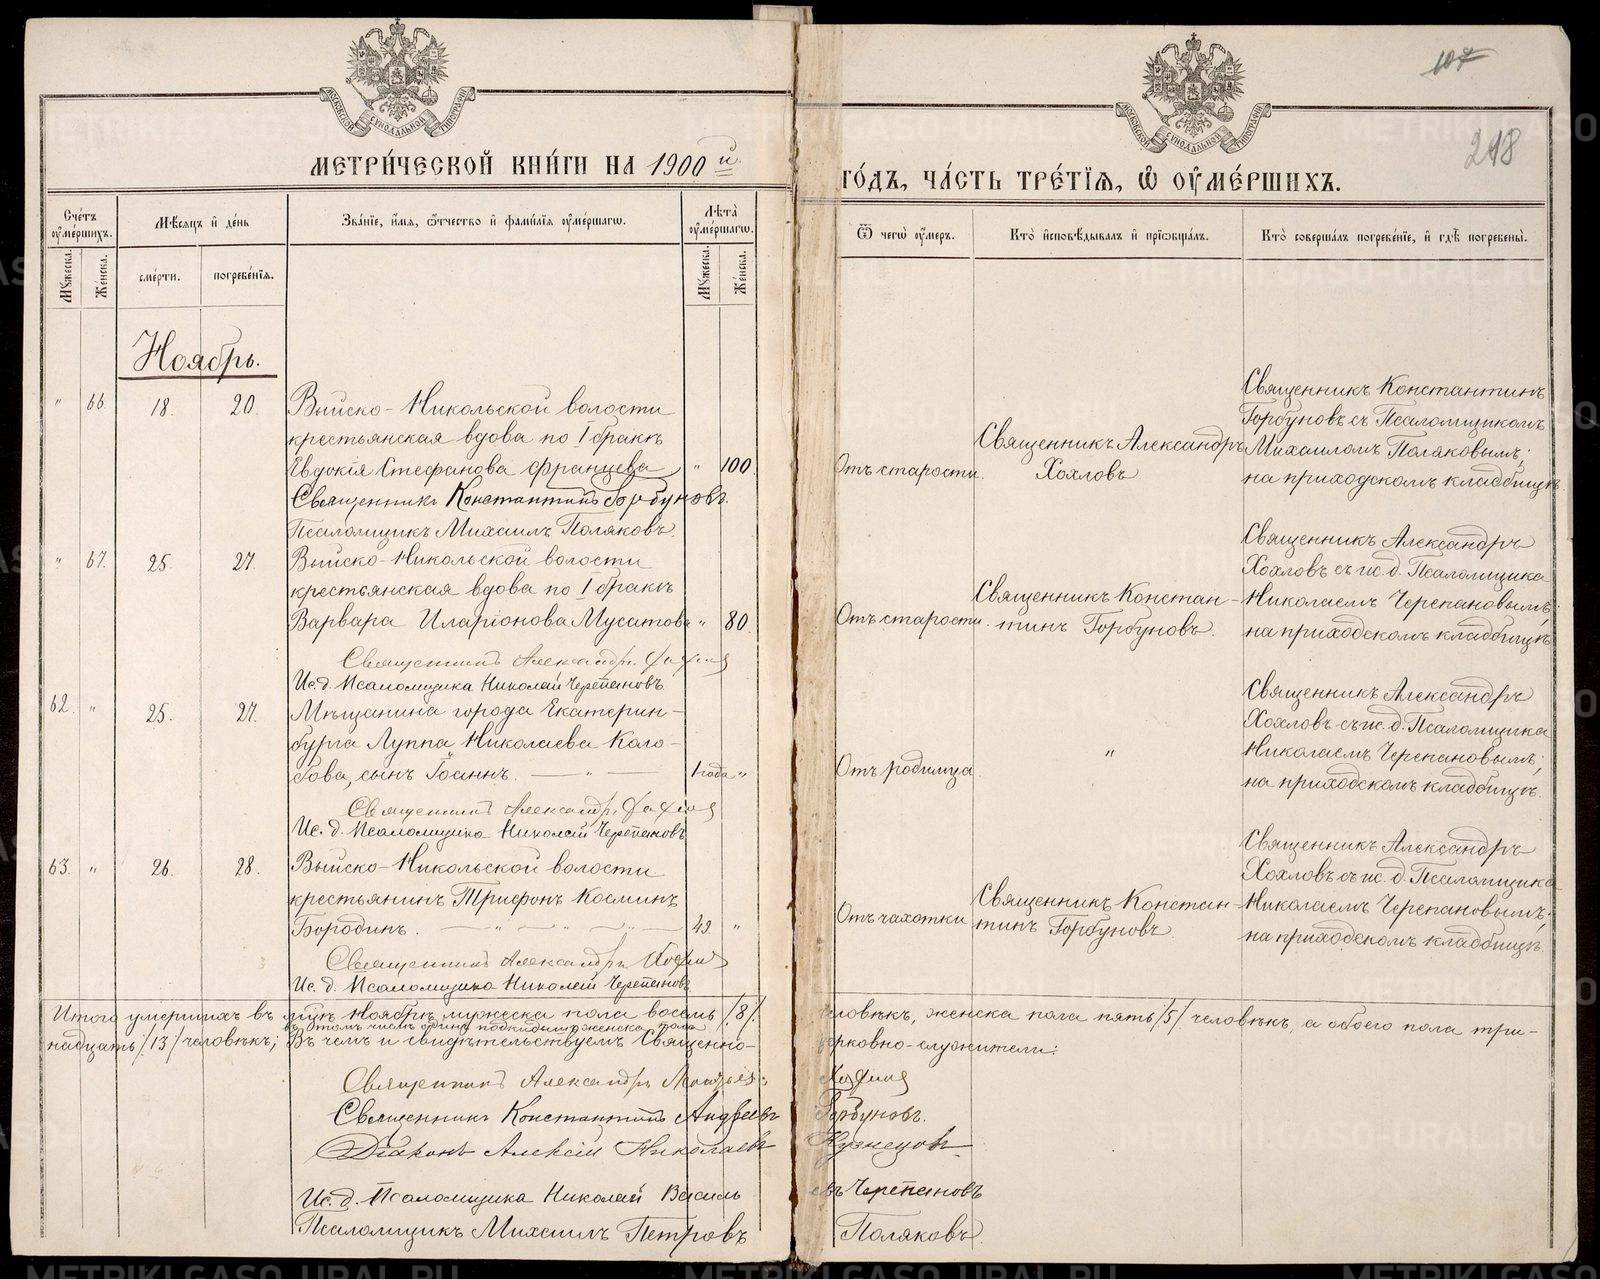 107
218
МОСКОВСКОЙ СУНОДАЛЬНОЙ ТИПОГРАФІИ
МОСКОВСКОЙ СУНОДАЛЬНОЙ ТИПОГРАФІИ
МЕТРИ́ЧЕСКОЙ КНИ́ГИ НА 1900 й
ГО́ДЪ, ЧА́СТЬ ТРЕ́ТІѦ, Ѡ҆ ОУ҆МЕ́РШИХЪ.
Сче́тъ оу҆ме́ршихъ.
Мѣ́сѧцъ и҆ де́нь
Зва́нїе, и҆́мѧ, ѻ҆́тчество и҆ фами́лїѧ оу҆ме́ршагѡ.
Лѣ́та оу҆ме́ршагѡ.
Ѿ чегѡ̀ оу҆́меръ.
Кто̀ и҆сповѣ́дывалъ и҆ прїѡбща́лъ.
Кто̀ соверша́лъ погребе́нїе, и҆ гдѣ̀ погребены̀.
Мꙋ́жеска.
Же́нска.
сме́рти.
погребе́нїѧ.
Мꙋ́жеска.
Же́нска.
Ноябрь.
" 66. 18. 20. Выйско-Никольской волости
крестьянская вдова по I бракѣ
Евдокія Стефанова Францева " 100.
Священникъ Константинъ Горбуновъ.
Псаломщикъ Михаилъ Поляковъ.
Отъ старости.
Священникъ Александръ
Хохловъ
Священникъ Константинъ
Горбуновъ съ Псаломщикомъ
Михаиломъ Поляковымъ;
на приходскомъ кладбищѣ.
" 67. 25. 27. Выйско-Никольской волости
крестьянская вдова по I бракѣ
Варвара Иларіонова Мусатова " 80.
Священникъ Александръ Хохловъ
Ис. д. Псаломщика Николай Черепановъ
Отъ старости.
Священникъ Констан-
тинъ Горбуновъ.
Священникъ Александръ
Хохловъ съ ис. д. Псаломщика
Николаемъ Черепановымъ;
на приходскомъ кладбищѣ.
62. " 25. 27. Мѣщанина города Екатерин-
бурга Луппа Николаева Коло-
бова, сынъ Іоаннъ. — " — 1 года "
Священникъ Александръ Хохловъ
Ис. д. Псаломщика Николай Черепановъ
Отъ родимца
"
Священникъ Александръ
Хохловъ съ ис. д. Псаломщика
Николаемъ Черепановымъ;
на приходскомъ кладбищѣ.
63. " 26. 28. Выйско-Никольской волости
крестьянинъ Трифонъ Косминъ
Бородинъ. — " — " — " — 42. "
Священникъ Александръ Хохловъ
Ис. д. Псаломщика Николай Черепановъ
Отъ чахотки
Священникъ Констан-
тинъ Горбуновъ.
Священникъ Александръ
Хохловъ съ ис. д. Псаломщика
Николаемъ Черепановымъ;
на приходскомъ кладбищѣ.
Итого умершихъ въ м-цѣ Ноябрѣ мужеска пола восемь /8/ человѣкъ, женска пола пять /5/ человѣкъ, а обоего пола три-
въ томъ числѣ одинъ подкидышъ женска пола
надцать /13/ человѣкъ; Въ чемъ и свидѣтельствуемъ Священно-церковно-служители:
Священникъ Александръ Хохловъ
Священникъ Константинъ Андреевъ Горбуновъ.
Діаконъ Алексій Николаевъ Кузнецовъ
Ис. д. Псаломщика Николай Васильевъ Черепановъ
Псаломщикъ Михаилъ Петровъ Поляковъ.
METRIKI.GASO-URAL.RU